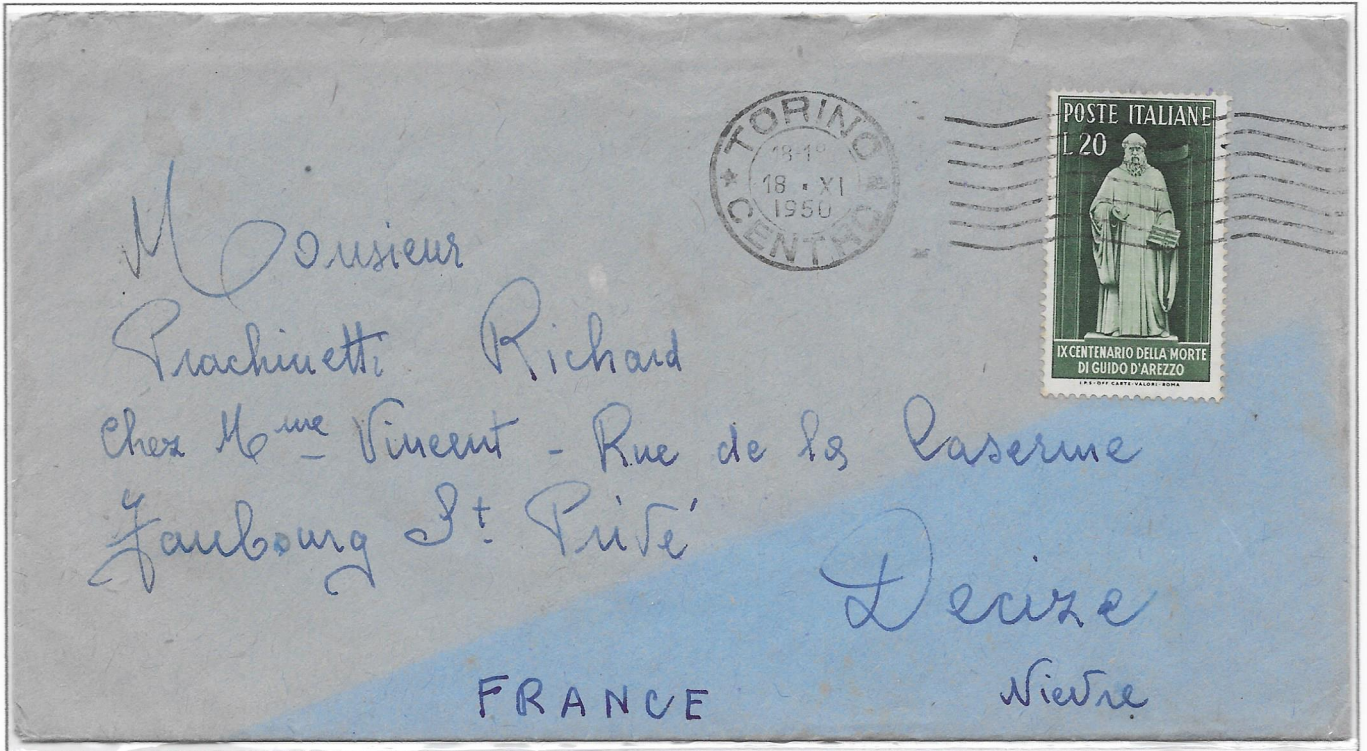 TORINO
18-19
18 · XI
1950
CENTRO
POSTE ITALIANE
L.20
IX CENTENARIO DELLA MORTE
DI GUIDO D'AREZZO
I.P.S-OFF. CARTE-VALORI-ROMA
Monsieur
Prachinetti Richard
Chez Mme Vincent - Rue de la Caserme
Faubourg St. Privé
Decize
Nievre
FRANCE